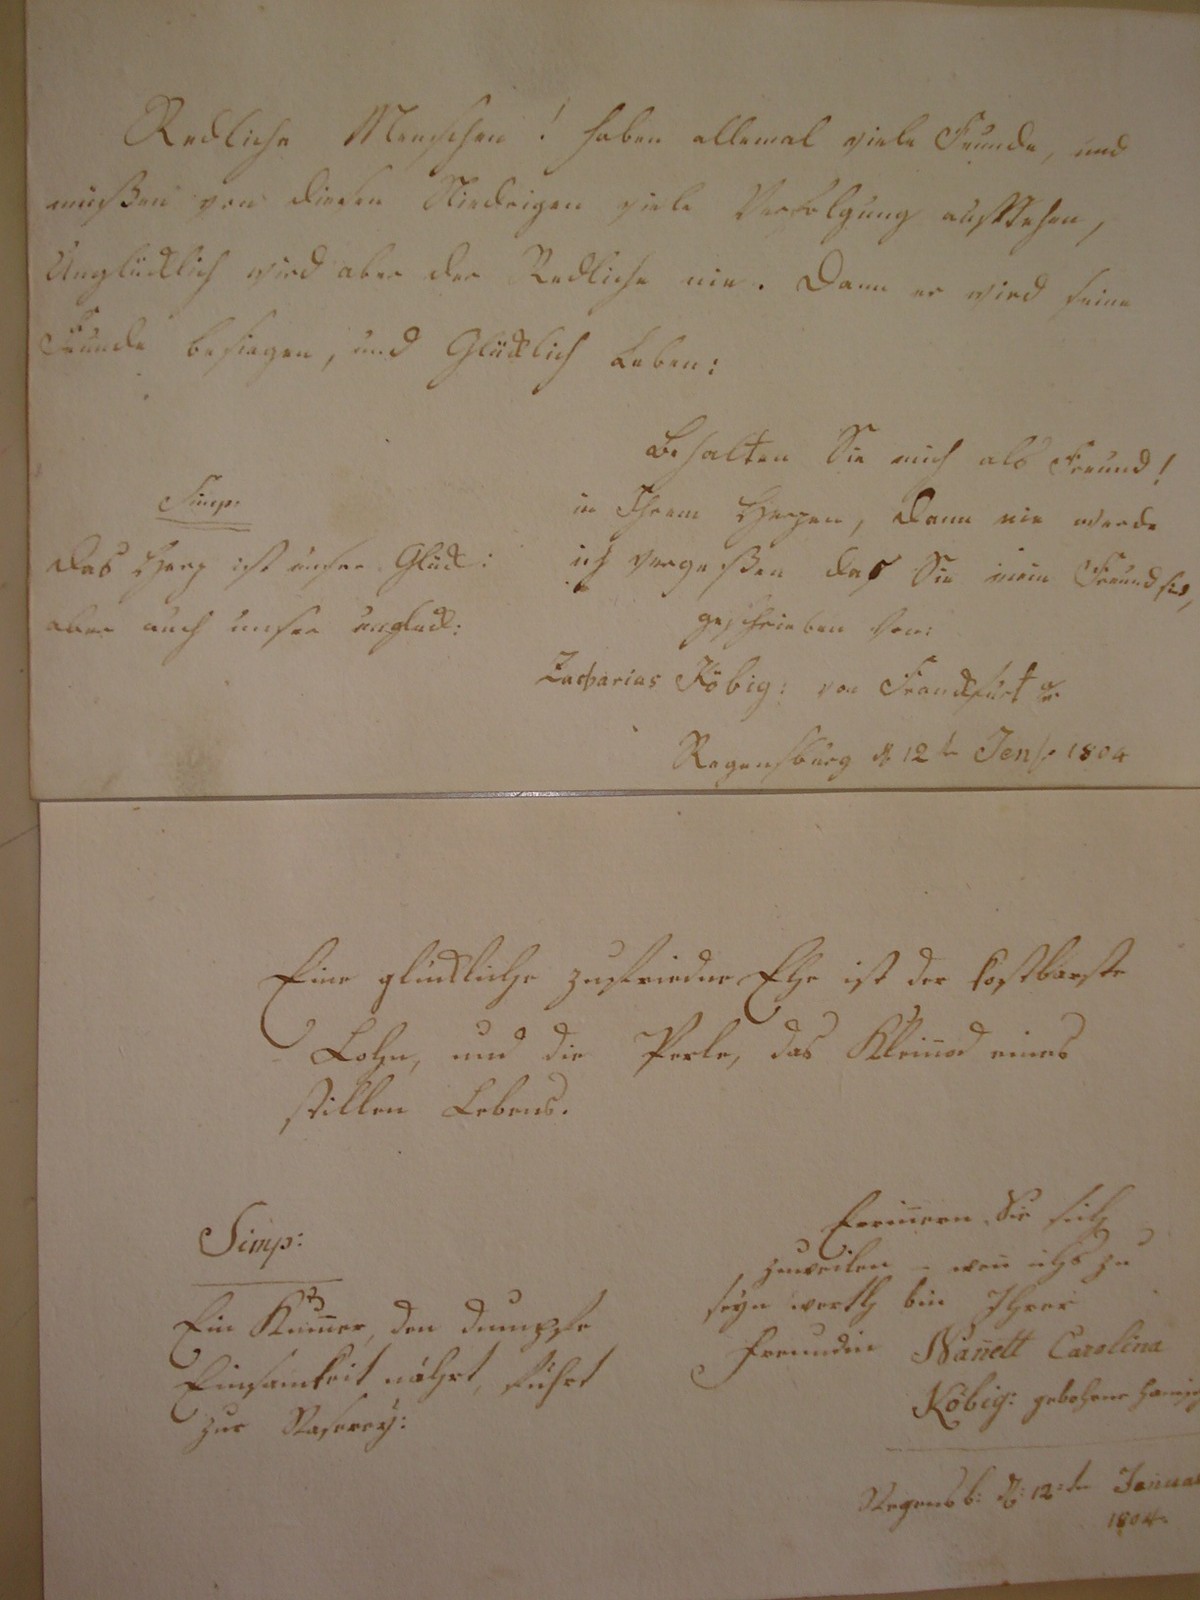 Redliche Menschen! haben allemal viele Feünde, und
müßen von diesen Niedrigen viele Verfolgung ausstehen,
Unglücklich wird aber der Redliche nie. Dann er wird seine
Feünde besiegen, und Glücklich Leben:
Behalten Sie mich als Freund!
in Ihrem Herzen, dann nie werde
ich vergeßen das Sie mein Freund sind,
geschrieben von:
Zacharias Köbig: von Franckfurt
Regensburg d 12t 1804
Simp:
das Herz ist unser Glück:
aber auch unser unglück:
Eine glückliche zufriedne Ehe ist der kostbarste
Lohn, und die Perle, das Kleinod eines
stillen Lebens.
Simp:
Ein Kum̄er, den dumpfe
Einsamkeit nährt, führt
zur Raserey:
Erin̄ern Sie sich
zuweilen – wen̄ ichs zu
seyn werth bin Ihrer
Freundin Nan̄ett Carolina
Köbig: gebohrne
Regensb: d: 12:ten Januar
1804.